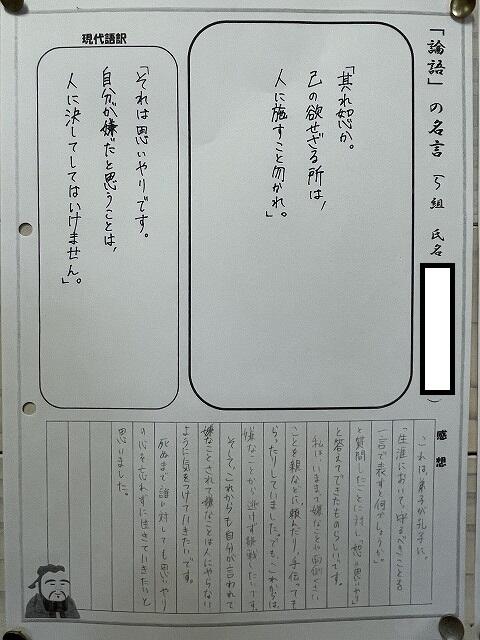 「論語」の名言(5組 氏名 )
「其れ恕か。
己の欲せざる所は、
人に施すこと勿かれ。」
現代語訳
「それは思いやりです。
自分が嫌だと思うことは、
人に決してしてはいけません。」
感想
これは、弟子が孔子に、
「生涯において守るべきことを
一言で表すと何でしょうか」
と質問したことに対し「恕(思いやり)」
と答えてできたものらしいです。
私は、いままで嫌なことや面倒くさい
ことを親などに頼んだり、手伝っても
らったりしていました。でも、これからは
嫌なことから逃げず挑戦したいです。
そして、これからも自分が言われて
嫌なことされて嫌なことは人にやらない
ように気をつけていきたいです。
死ぬまで誰に対しても思いやり
の心を忘れずに生きていきたいと
思いました。